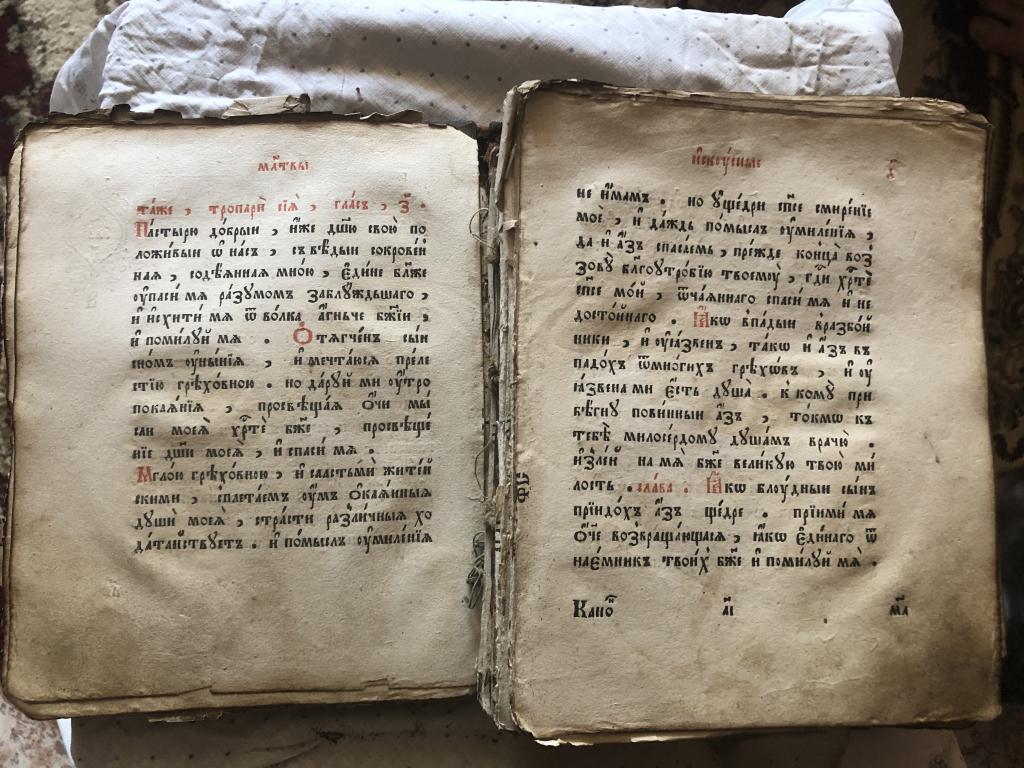 мл҃твы
та́же , тропари̂ сїѧ̀ , гла́съ , з҃ .
Па́стырю до́брыи , и҆́же дш҃ю свою̀ по
ложи́выи ѡ҆ на́съ , съвѣ́дыи сокрове́н
наѧ , содѣ́ѧннаѧ мно́ю , є҆ди́не бл҃же
ѹ҆пасѝ мѧ ра́зумомъ заблу́ждьшаго ,
и҆ и҆схитѝ мѧ ѿ во́лка а҆́гньче бж҃їи ,
и҆ поми́луй мѧ . Ѻ҆тѧгче́нъ сы́и
сно́мъ ѹ҆ны́нїѧ , и҆ мечта́юсѧ пре́ле
стїю грѣхо́вною . но да́руй ми ѹ҆́тро
покаѧ́нїѧ , просвѣща́ѧ ѻ҆́чи мы́
сли моеѧ̀ хрⷭ҇тѐ бж҃е , просвѣще
нїе дш҃и моеѧ̀ , и҆ спаси́ мѧ .
Мгло́ю грѣхо́вною , и҆ сласть́ми жите́й
скими , сплета́емъ ѹ҆́мъ ѻ҆каѧ́нныѧ
душѝ моеѧ̀ , стра́сти разли́чныѧ хо
да́таиствуетъ . и҆ по́мыслъ ѹ҆миле́нїѧ
и҆скѹ́сные х҃
не и҆́мамъ . но ѹ҆ще́дри сп҃се смире́нїе
моѐ , и҆ да́ждь по́мыслъ ѹ҆миле́нїѧ ,
да и҆ а҆́зъ спаса́емь , пре́жде конца̀ воз
зову̀ бл҃гоутро́бїю твоемѹ̀ , гдⷭ҇и хрⷭ҇тѐ
сп҃се мо́й , ѿча́ѧннаго спаси́ мѧ и҆ не
досто́йнаго . Ꙗ҆́кѡ впа́дыи вразбо́й
ники , и҆ ѹ҆ѧ́звенъ , та́кѡ и҆ а҆́зъ въ
падо́хъ ѿмно́гихъ грѣхѡ́въ , и҆ ѹ҆
ѧ́звена ми є҆́сть душа̀ . к кому̀ при
бѣ́гну пови́нныи а҆́зъ , то́кмѡ къ
тебѣ̀ милосе́рдому душа́мъ врачю̀ .
и҆злѣ́й на мѧ̀ бж҃е вели́кую твою̀ ми́
лость . сла́ва . Ꙗ҆́кѡ блу́дныи сы́нъ
прїидо́хъ а҆́зъ ще́дре . прїими́ мѧ
ѻ҆́ч҃е возвраща́ющасѧ , ꙗ҆́кѡ є҆ди́наго ѿ
нае́мникъ твои́хъ бж҃е и҆ поми́луй мѧ̀ .
Кано́ а҃і м҃а